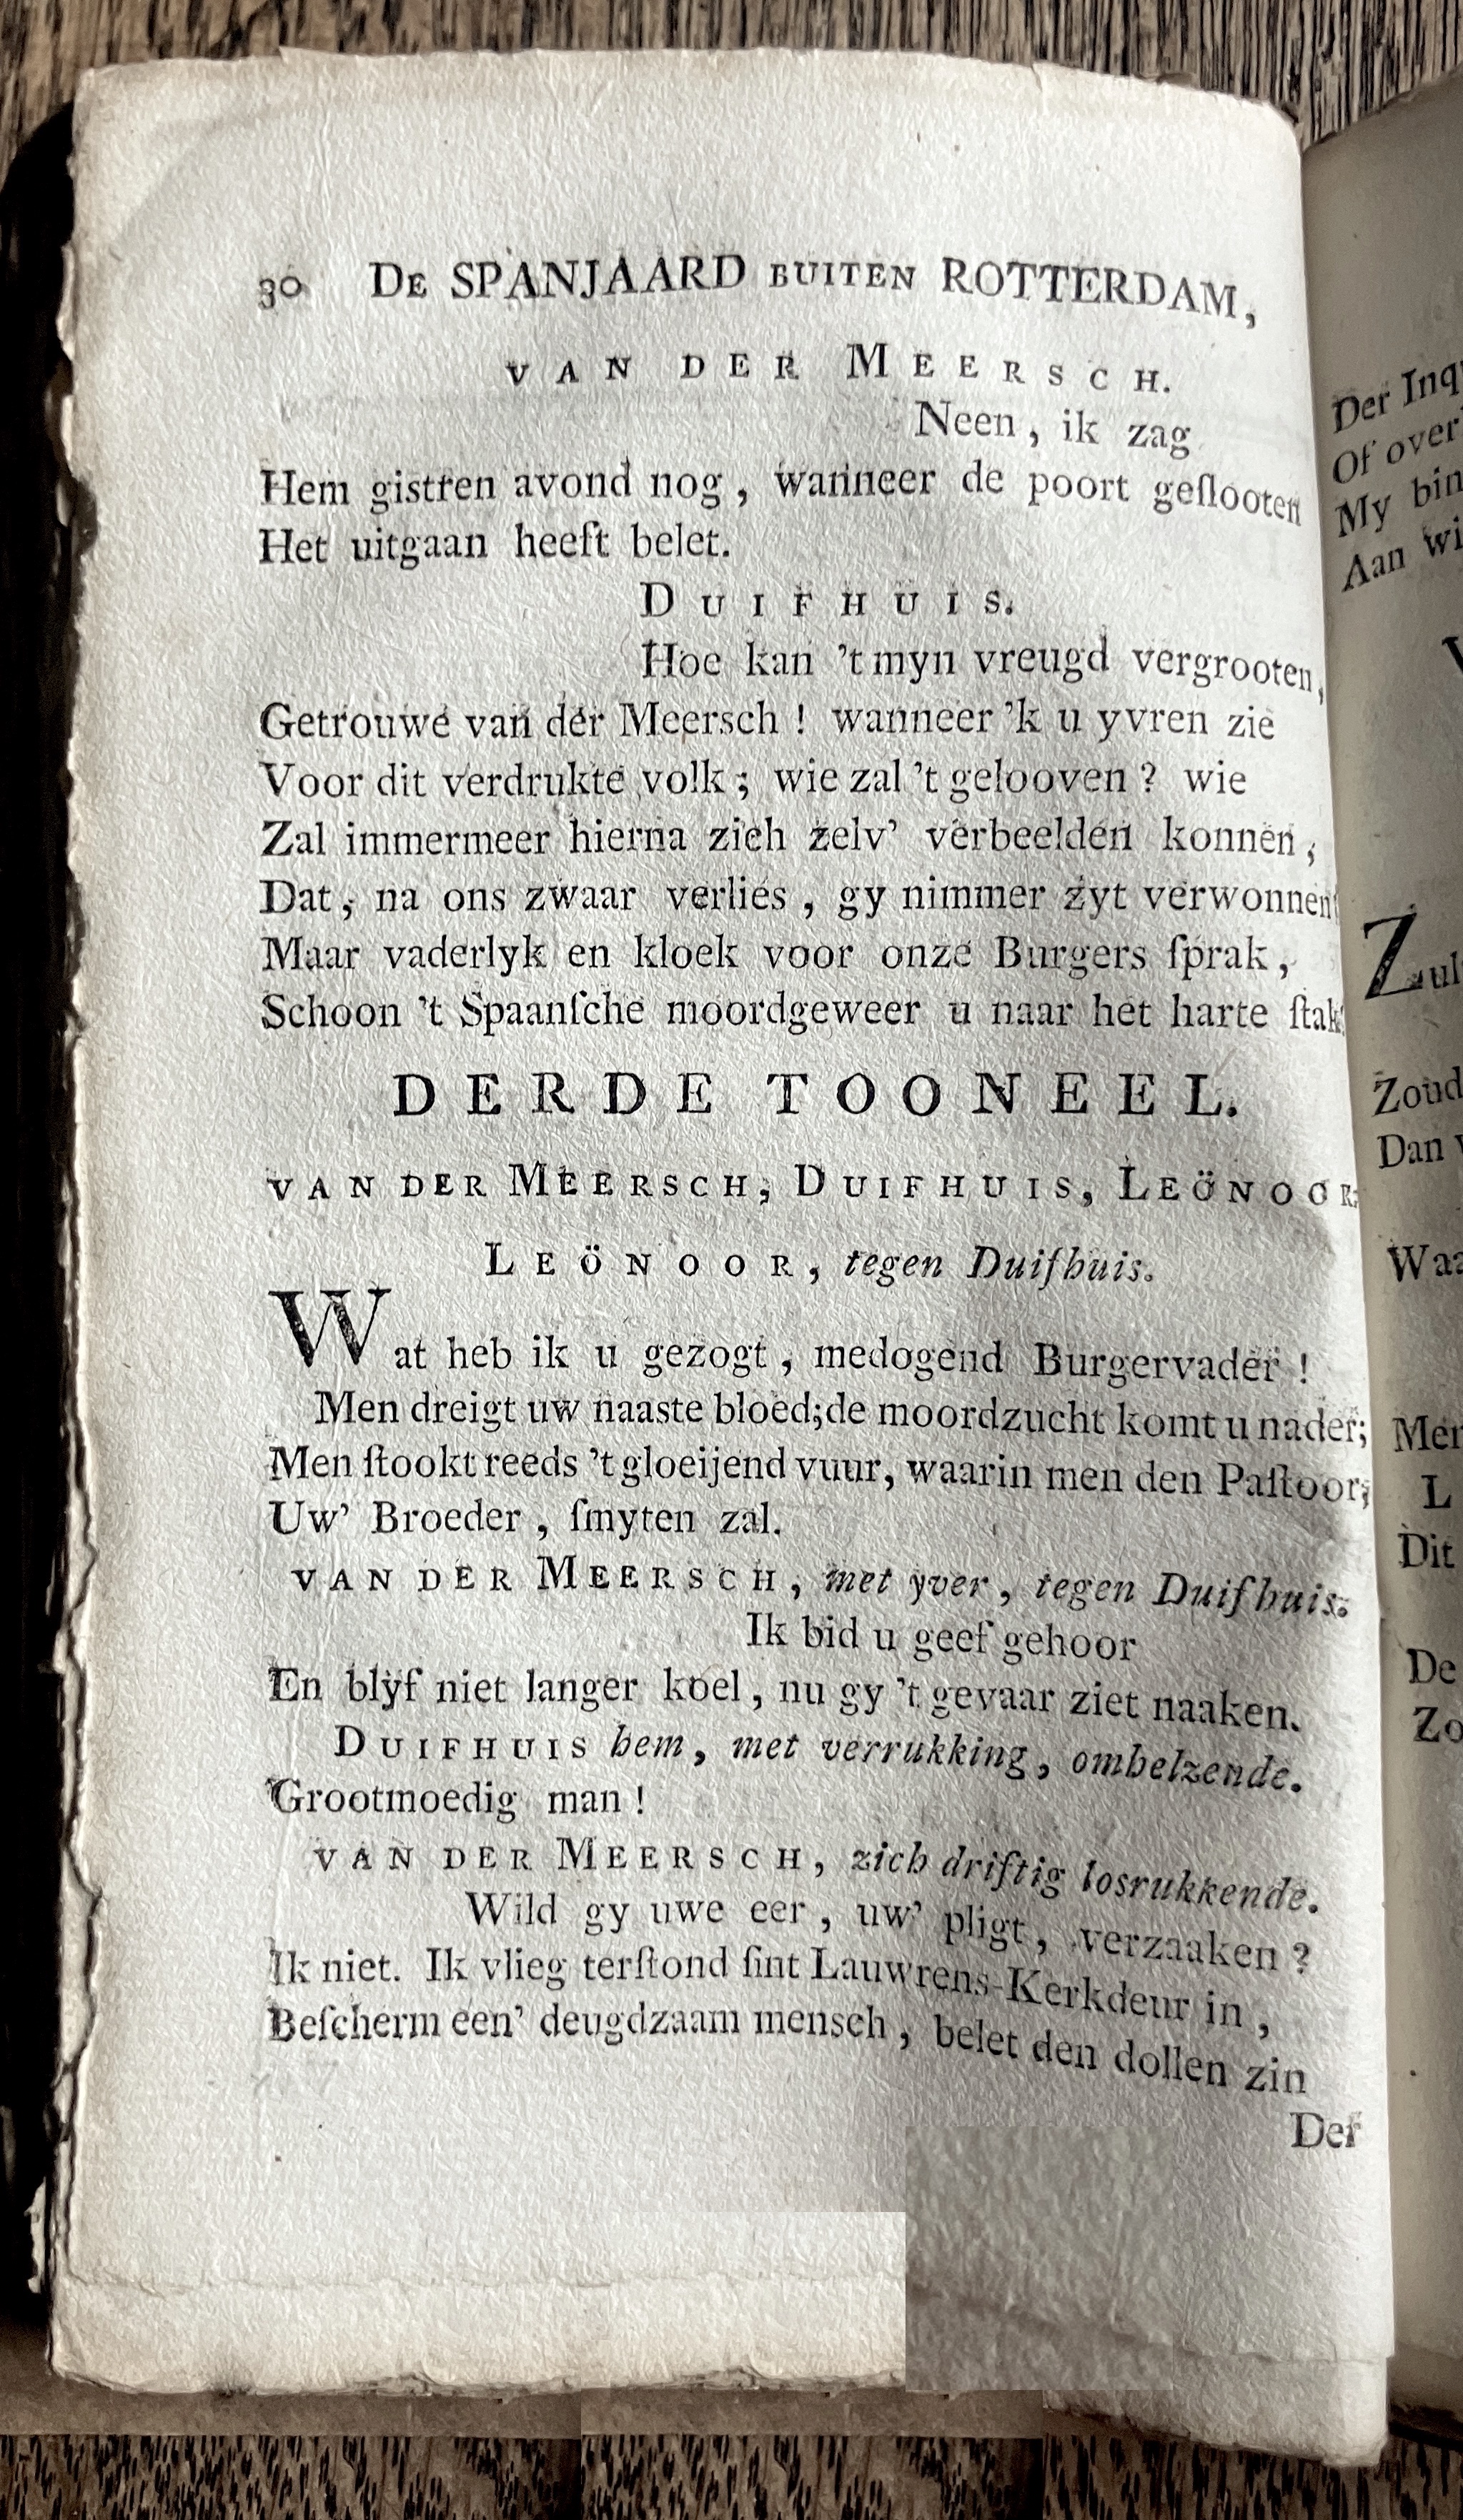 30 De SPANJAARD BUITEN ROTTERDAM,
VAN DER MEERSCH.
Neen, ik zag
Hem gistren avond nog, wanneer de poort geſlooten
Het uitgaan heeft belet.
DUIFHUIS.
Hoe kan 't myn vreugd vergrooten,
Getrouwe van der Meersch! wanneer 'k u yvren zie
Voor dit verdrukte volk; wie zal 't gelooven? wie
Zal immermeer hierna zich zelv' verbeelden konnen,
Dat, na ons zwaar verlies, gy nimmer zyt verwonnen
Maar vaderlyk en kloek voor onze Burgers ſprak,
Schoon 't Spaanſche moordgeweer u naar het harte ſtak
DERDE TOONEEL.
VAN DER MEERSCH, DUIFHUIS, LEÖNOOR.
LEÖNOOR, tegen Duifhuis.
Wat heb ik u gezogt, medogend Burgervader!
Men dreigt uw naaste bloed; de moordzucht komt u nader;
Men ſtookt reeds 't gloeijend vuur, waarin men den Paſtoor,
Uw' Broeder, ſmyten zal.
VAN DER MEERSCH, met yver, tegen Duifhuis.
Ik bid u geef gehoor
En blyf niet langer koel, nu gy 't gevaar ziet naaken.
DUIFHUIS hem, met verrukking, omhelzende.
Grootmoedig man!
VAN DER MEERSCH, zich driftig losrukkende.
Wild gy uwe eer, uw' pligt, verzaaken?
Ik niet. Ik vlieg terſtond ſint Lauwrens-Kerkdeur in,
Beſcherm een' deugdzaam mensch, belet den dollen zin
Der
Der
Of
My
Aan
Zoud
Dan
Men
L
Dit
De
Zo